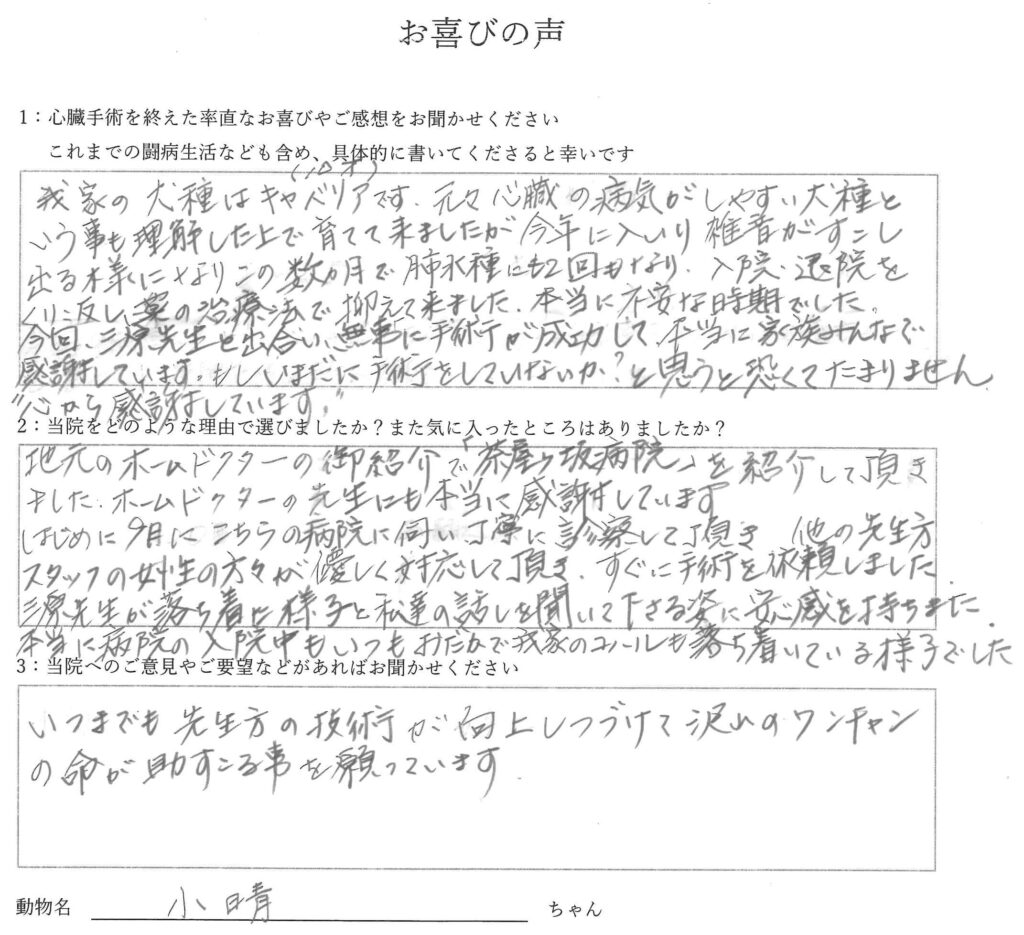 お喜びの声
1：心臓手術を終えた率直なお喜びやご感想をお聞かせください
これまでの闘病生活なども含め、具体的に書いてくださると幸いです
我家の犬種はキャバリアです. 元々心臓の病気がしやすい犬種と
いう事も理解した上で育てて来ましたが今年に入いり雑音がすこし
出る様になりこの数ヵ月で肺水種にも2回もなり. 入院、退院を
くり返し薬の治療法で抑えて来ました. 本当に不安な時期でした.
今回、三原先生と出合い、無事に手術が成功して、本当に家族みんなで
感謝しています。もしいまだに手術をしていないか?と思うと恐くてたまりません
"心から感謝しています。"
2：当院をどのような理由で選びましたか？また気に入ったところはありましたか？
地元のホームドクターの御紹介で「茶屋ヶ坂病院」を紹介して頂き
ました. ホームドクターの先生にも本当に感謝しています
はじめに9月にこちらの病院に伺い丁寧に診察して頂き 他の先生方
スタッフの女性の方々が優しく対応して頂き. すぐに手術を依頼しました.
三原先生が落ち着た様子と私達の話しを聞いて下さる姿に安心感を持ちました.
本当に病院の入院中もいつもおだかで我家のコールも落ち着いている様子でした
3：当院へのご意見やご要望などがあればお聞かせください
いつまでも先生方の技術が向上しつづけて沢山のワンチャン
の命が助すこる事を願っています.
動物名 小晴 ちゃん